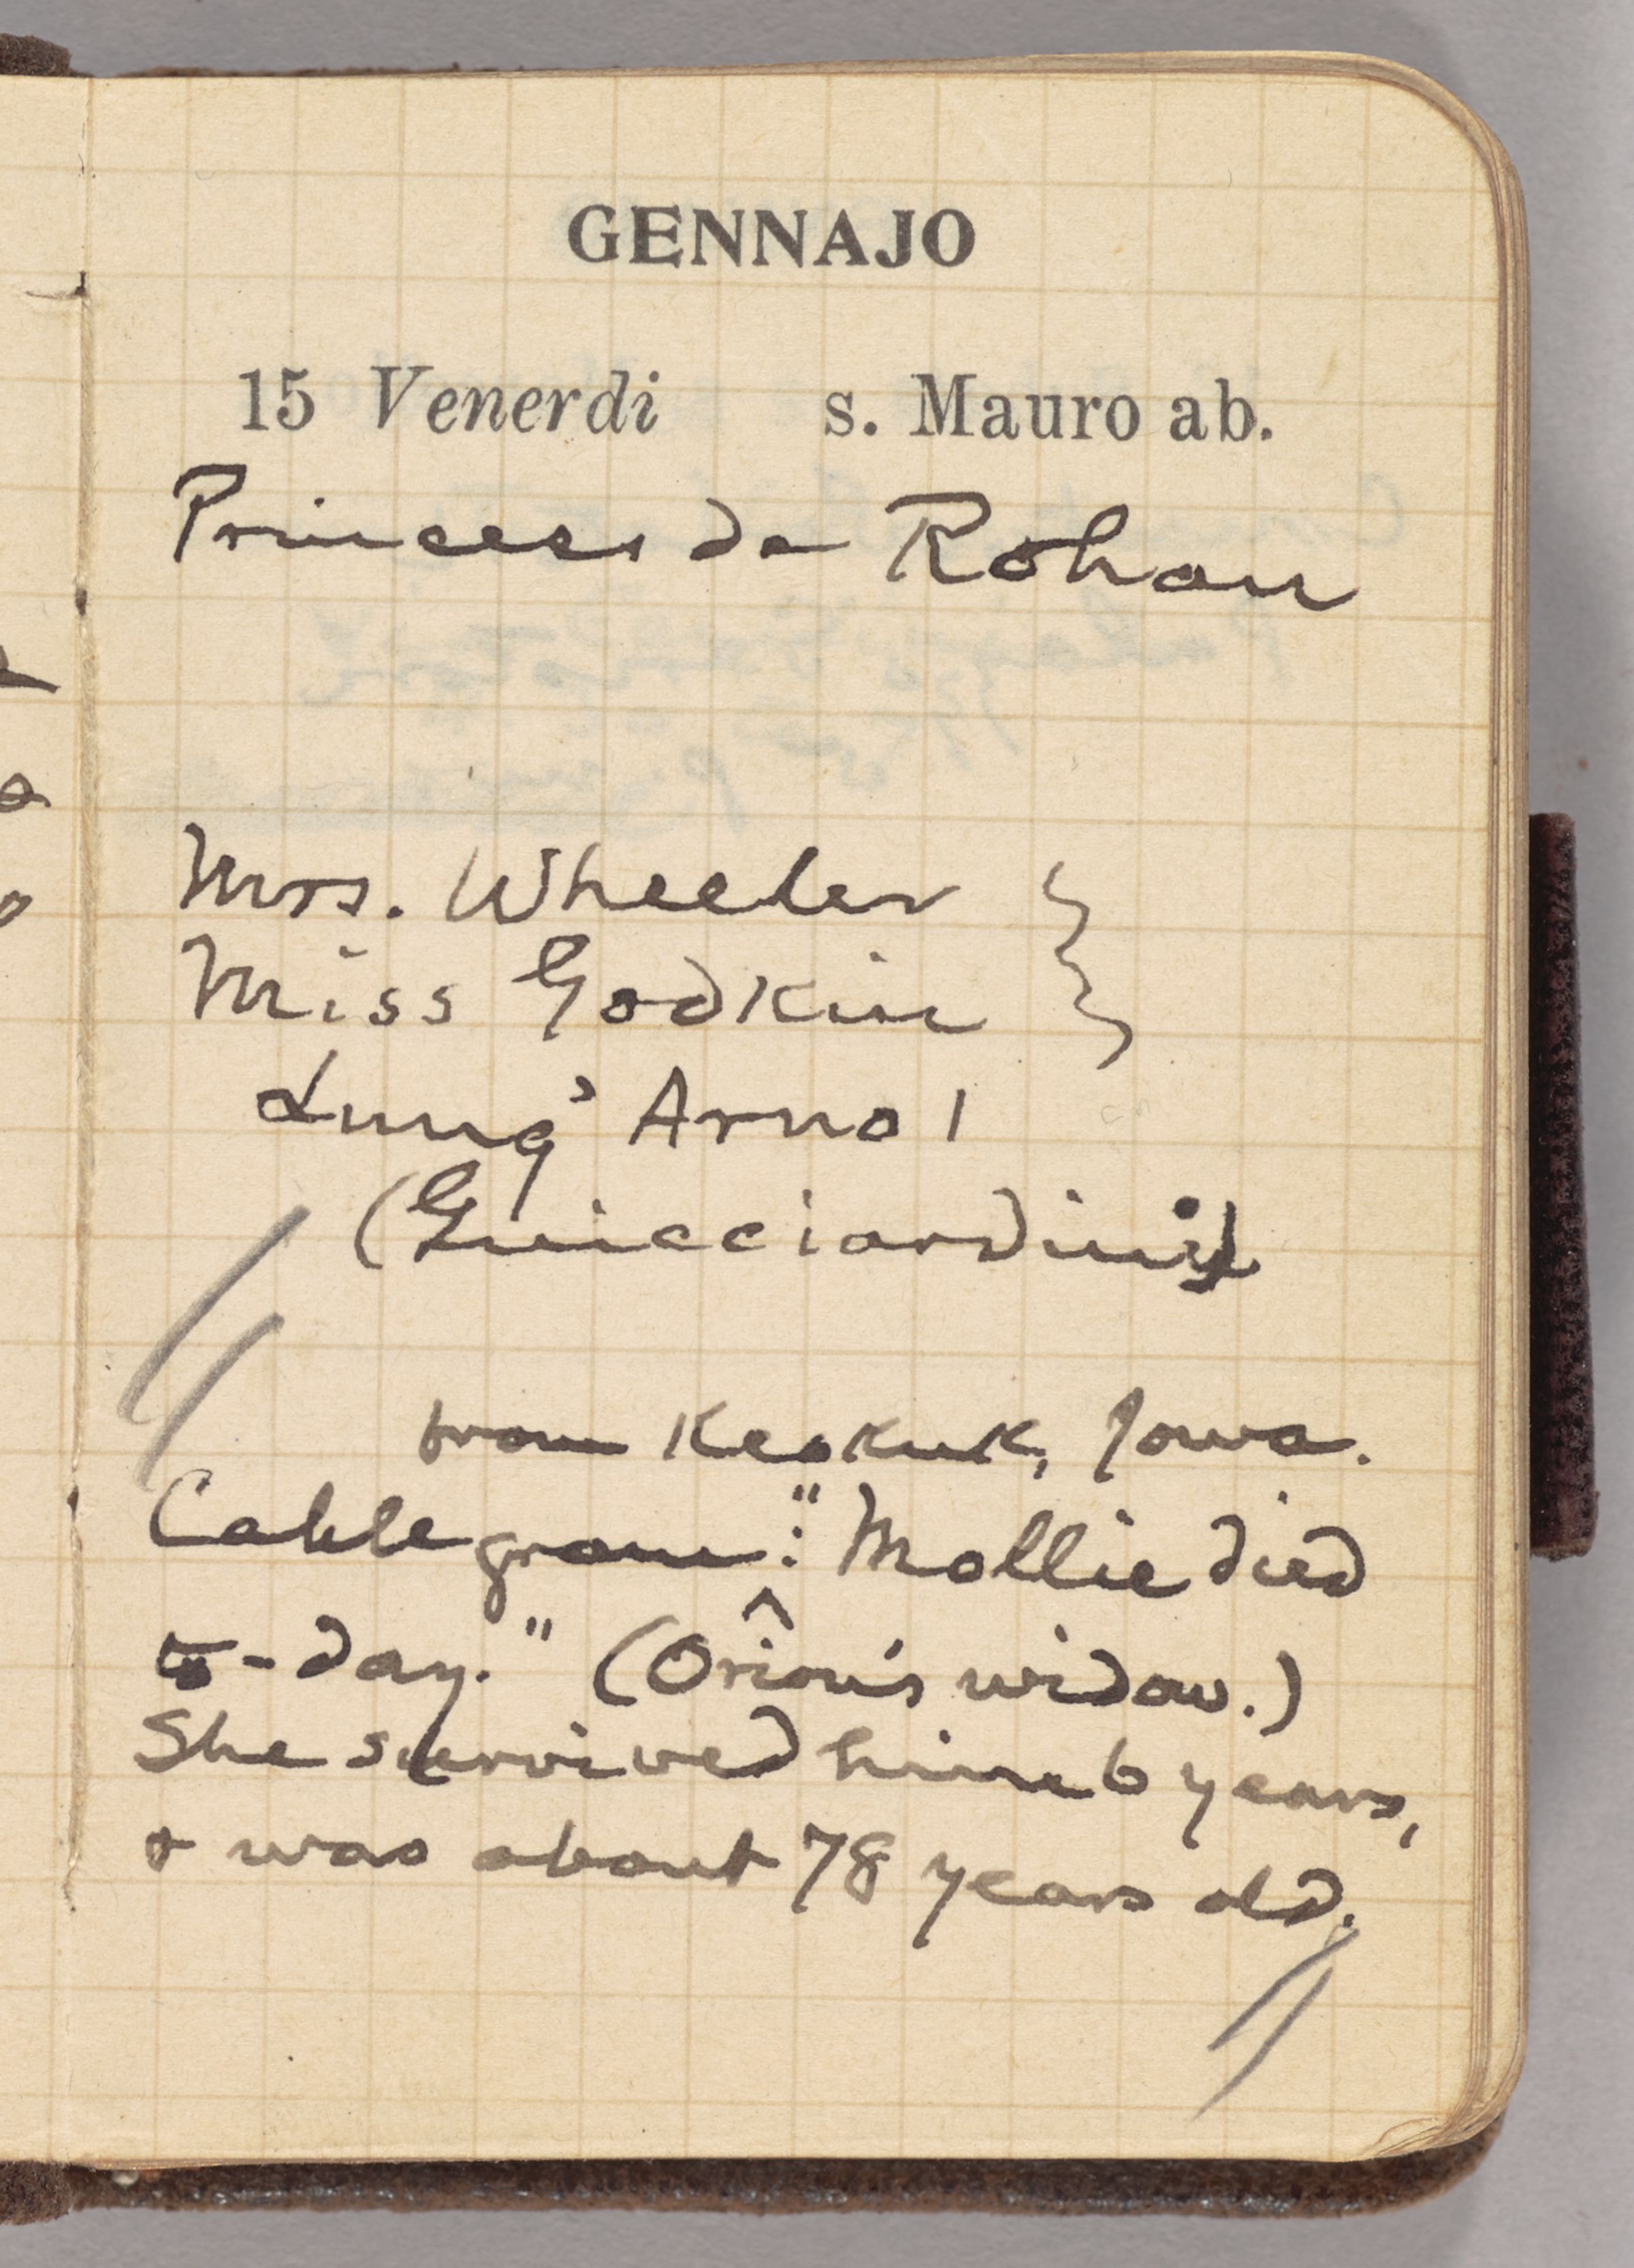 GENNAJO
15 Venerdi s. Mauro ab.
Princess de Rohan
Mrs. Wheeler }
Miss Godkin }
Lung' Arno 1
(Guicciardini)
from Keokuk, Iowa.
Cablegram: "Mollie died
to-day." (Orion's widow.)
She survived him 6 years,
& was about 78 years old.